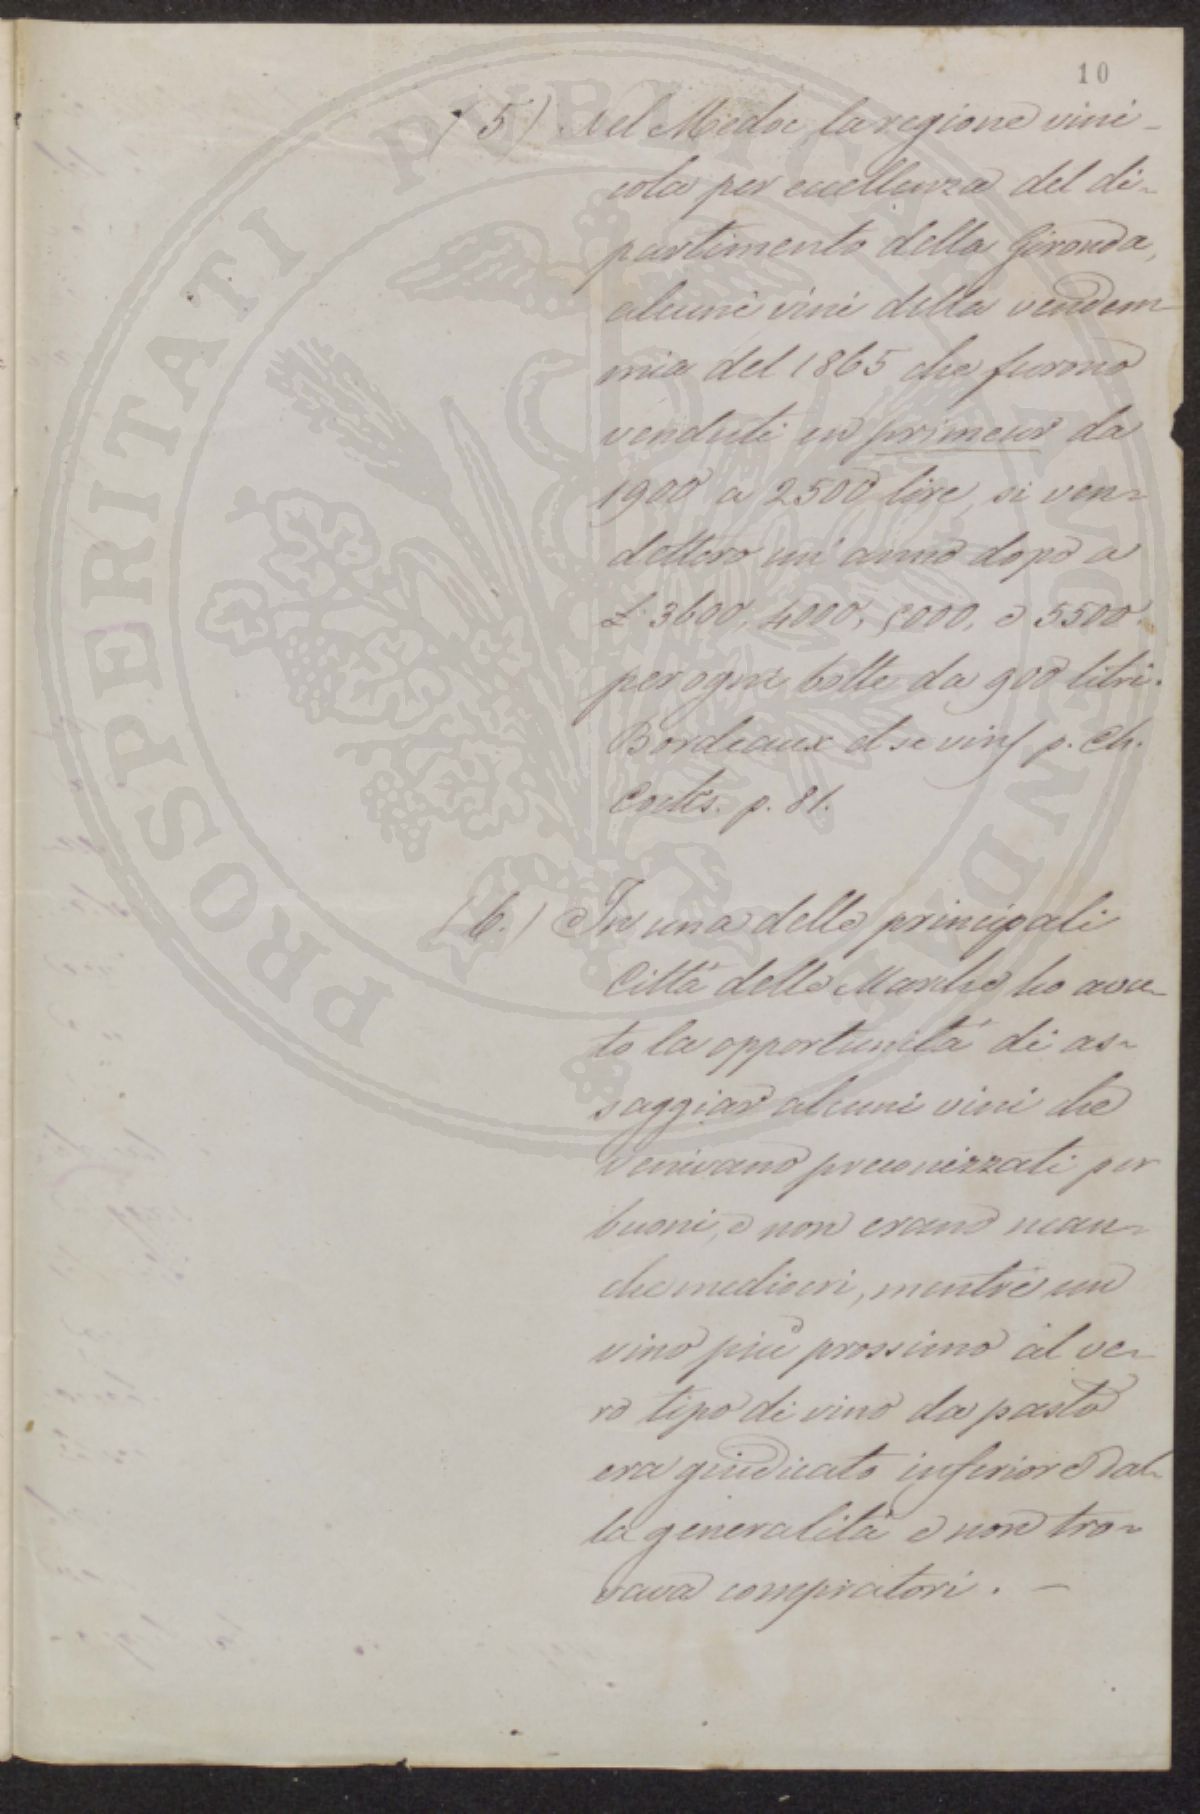 10
(5) Nel Medoc la regione vini-
cola per eccellenza del di-
partimento della Gironda,
alcuni vini della vendem-
mia del 1865 che furono
venduti en primeur da
1900 a 2500 lire, si ven-
dettero un' anno dopo a
£ 3600, 4000, 5000, e 5500
per ogni botte da 900 litri.
Bordeaux et se vins p. Ch.
Cocks. p. 81.
(6.) In una delle principali
Città delle Marche ho avu-
to la opportunità di as-
saggiar alcuni vini che
venivano preconizzati per
buoni, e non erano nean-
che mediocri, mentre un
vino più prossimo al ve-
ro tipo di vino da pasto
era giudicato inferiore dal-
la generalità e non tro-
vava compratori. —
PROSPERITATI PUBLICAE AUGENDAE